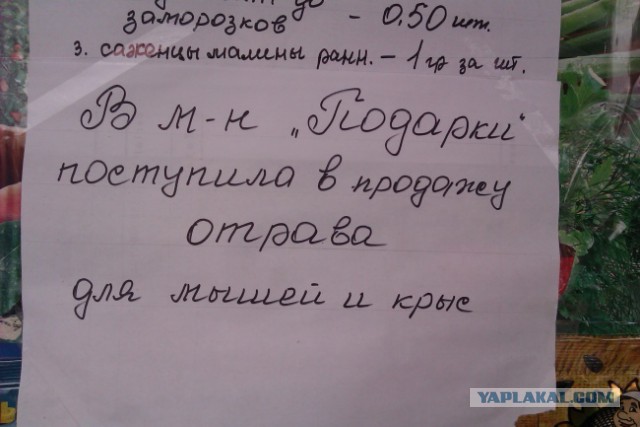 до
заморозков - 0,50 шт.
3. саженцы малины ранн. - 1 гр за шт.
В м-н „Подарки“
поступила в продажу
отрава
для мышей и крыс
YAPLAKAL.COM